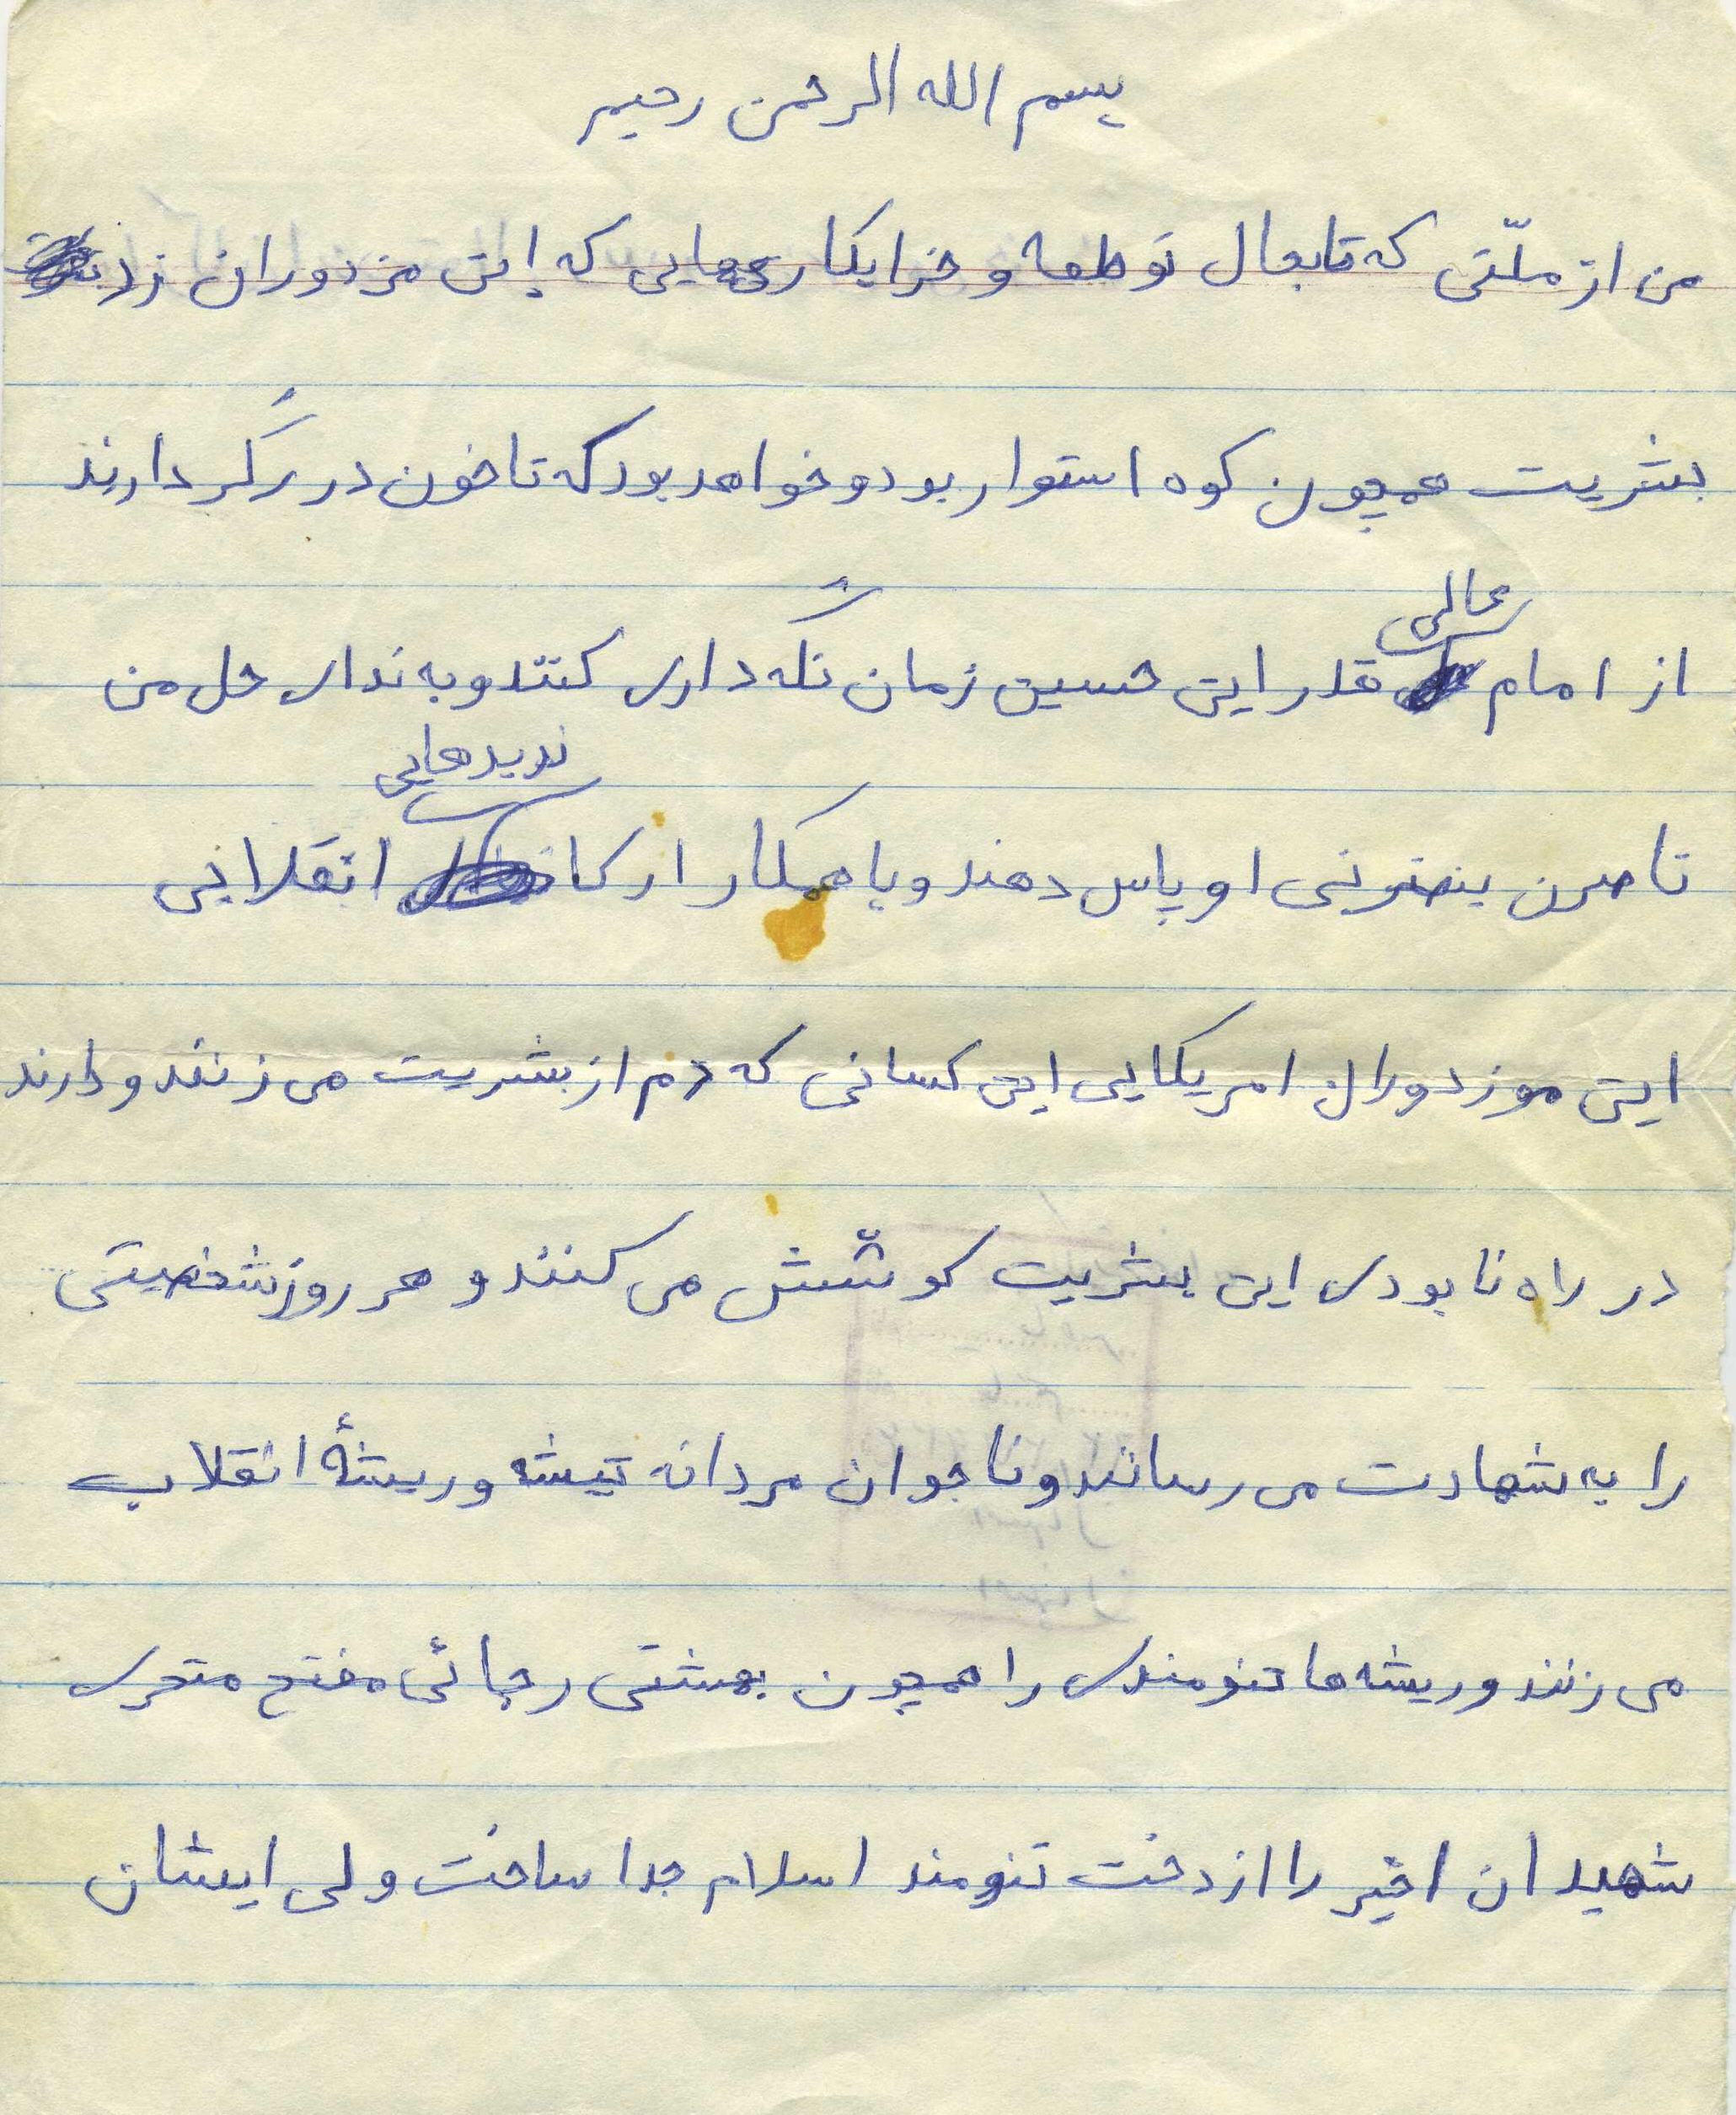 بسم الله الرحمن رحیم
من از ملّتی که تابحال توطعه و خرابکاری‌هایی که این مزدوران زد
بشریت همچون کوه استوار بود و خواهد بود که تا خون در رگ دارند
از امام عالی قدر این حسین زمان نگه داری کنند و به ندای حل من
ناصرن ینصرنی او پاس دهند و با همکار ار کا ندیدهایی انقلابی
این موزدوران امریکایی این کسانی که دم از بشریت می زنند و دارند
در راه نابودی این بشریت کوشش می کنند و هر روز شخصیتی
را به شهادت می رسانند و نا جوان مردانه تیشه و ریشهٔ انقلاب
می زنند و ریشه ها تنومندی را همچون بهشتی رجائی مفتح
شهیدان اخیر را از دخت تنومند اسلام جدا ساخت ولی ایشان